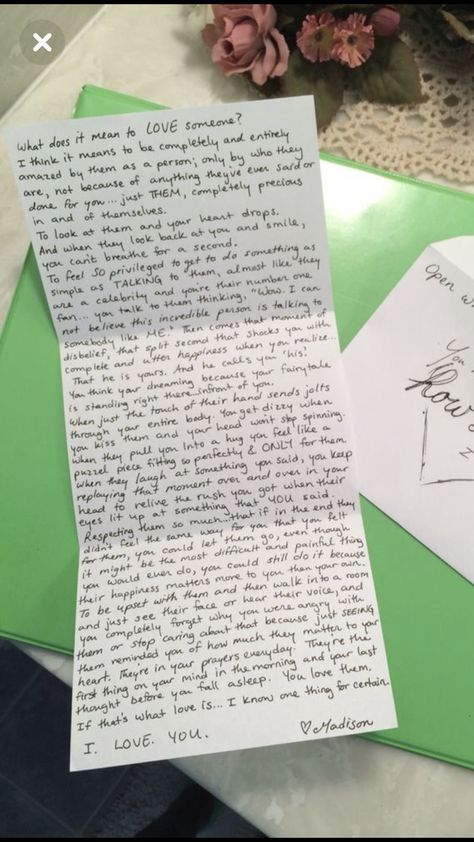 What does it mean to LOVE someone?
I think it means to be completely and entirely
amazed by them as a person; only by who they
are, not because of anything they've ever said or
done for you... just THEM, completely precious
in and of themselves.
To look at them and your heart drops.
And when they look back at you and smile,
you can't breathe for a second.
To feel SO privileged to get to do something as
simple as TALKING to them, almost like they
are a celebrity and you're their number one
fan... you talk to them thinking, "Wow. I can
not believe this incredible person is talking to
somebody like ME." Then comes that moment of
disbelief, that split second that shocks you with
complete and utter happiness when you realize...
That he is yours. And he calls you 'his'.
You think your dreaming because your fairytale
is standing right there infront of you.
When just the touch of their hand sends jolts
through your entire body. You get dizzy when
you kiss them and your head won't stop spinning.
When they pull you into a hug you feel like a
puzzel piece fitting so perfectly & ONLY for them.
When they laugh at something you said, you keep
replaying that moment over and over in your
head to relive the rush you got when their
eyes lit up at something that YOU said.
Respecting them so much... that if in the end they
didn't feel the same way for you that you felt
for them, you could let them go, even though
it might be the most difficult and painful thing
you would ever do, you could still do it because
their happiness matters more to you then your own.
To be upset with them and then walk into a room
and just see their face or hear their voice, and
you completely forget why you were angry with
them or stop caring about that because just SEEING
them reminded you of how much they matter to your
heart. They're in your prayers everyday. They're the
first thing on your mind in the morning and your last
thought before you fall asleep. You love them.
If that's what love is... I know one thing for certain.
I. LOVE. YOU.
♡Madison
Open w
You
how
I